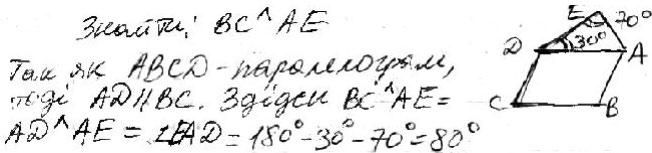 Знайти: BC^AE
Так як ABCD - паралелограм,
тоді AD||BC. Звідси BC^AE=
AD^AE = ∠EAD = 180° - 30° - 70° = 80°
E 70°
D 30° A
C B